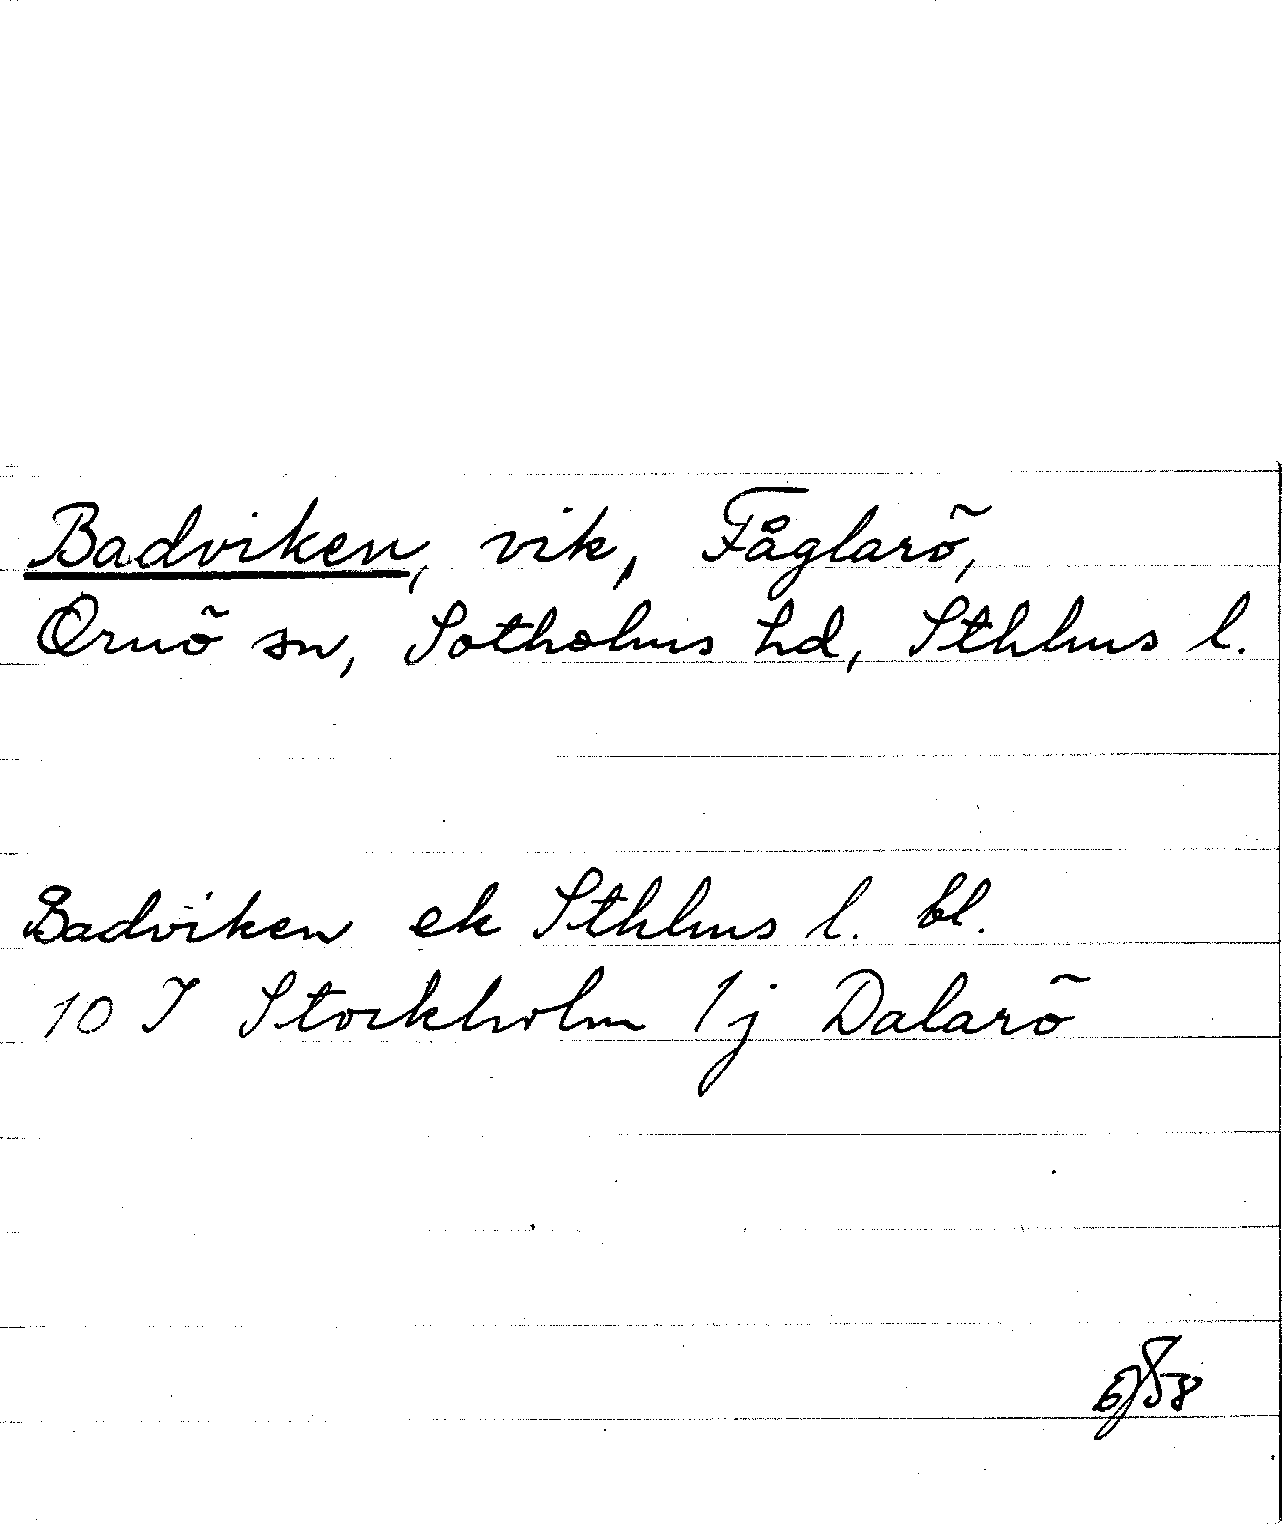 Badviken, vik, Fåglarö,
Ornö sn, Sotholms hd, Sthlms l.
Badviken ek Sthlms l. bl.
10 I Stockholm 1j Dalarö